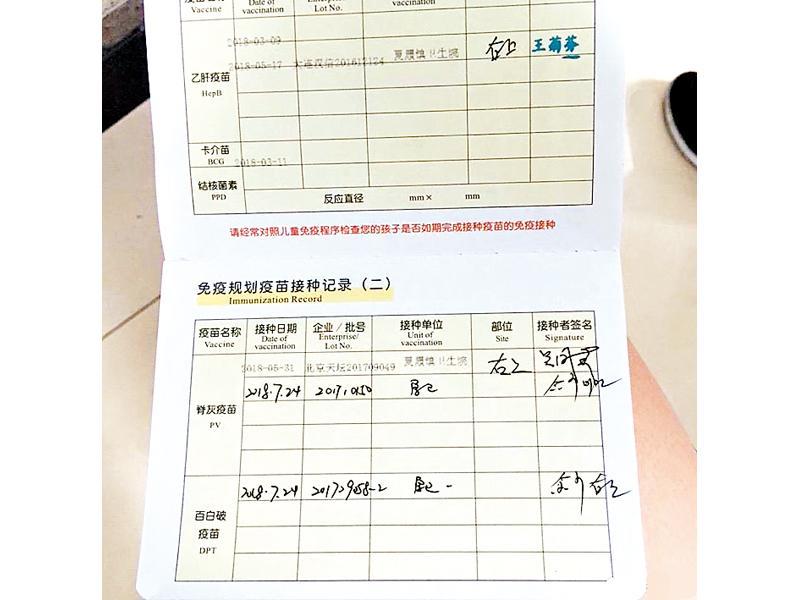 Vaccine
Date of
vaccination
Lot No.
vaccination
2018-03-09
2018-05-17 大连汉信201612124 夏履镇卫生院 右上 王菊芬
乙肝疫苗
HepB
卡介苗
BCG
2018-03-11
结核菌素
PPD
反应直径 mm× mm
请经常对照儿童免疫程序检查您的孩子是否如期完成接种疫苗的免疫接种
免疫规划疫苗接种记录（二）
Immunization Record
疫苗名称 接种日期 企业／批号 接种单位 部位 接种者签名
Vaccine Date of vaccination Enterprise/ Lot No. Unit of vaccination Site Signature
2018-05-31 北京天坛201709049 夏履镇卫生院
2018.7.24
脊灰疫苗
PV
2018.7.24
百白破
疫苗
DPT